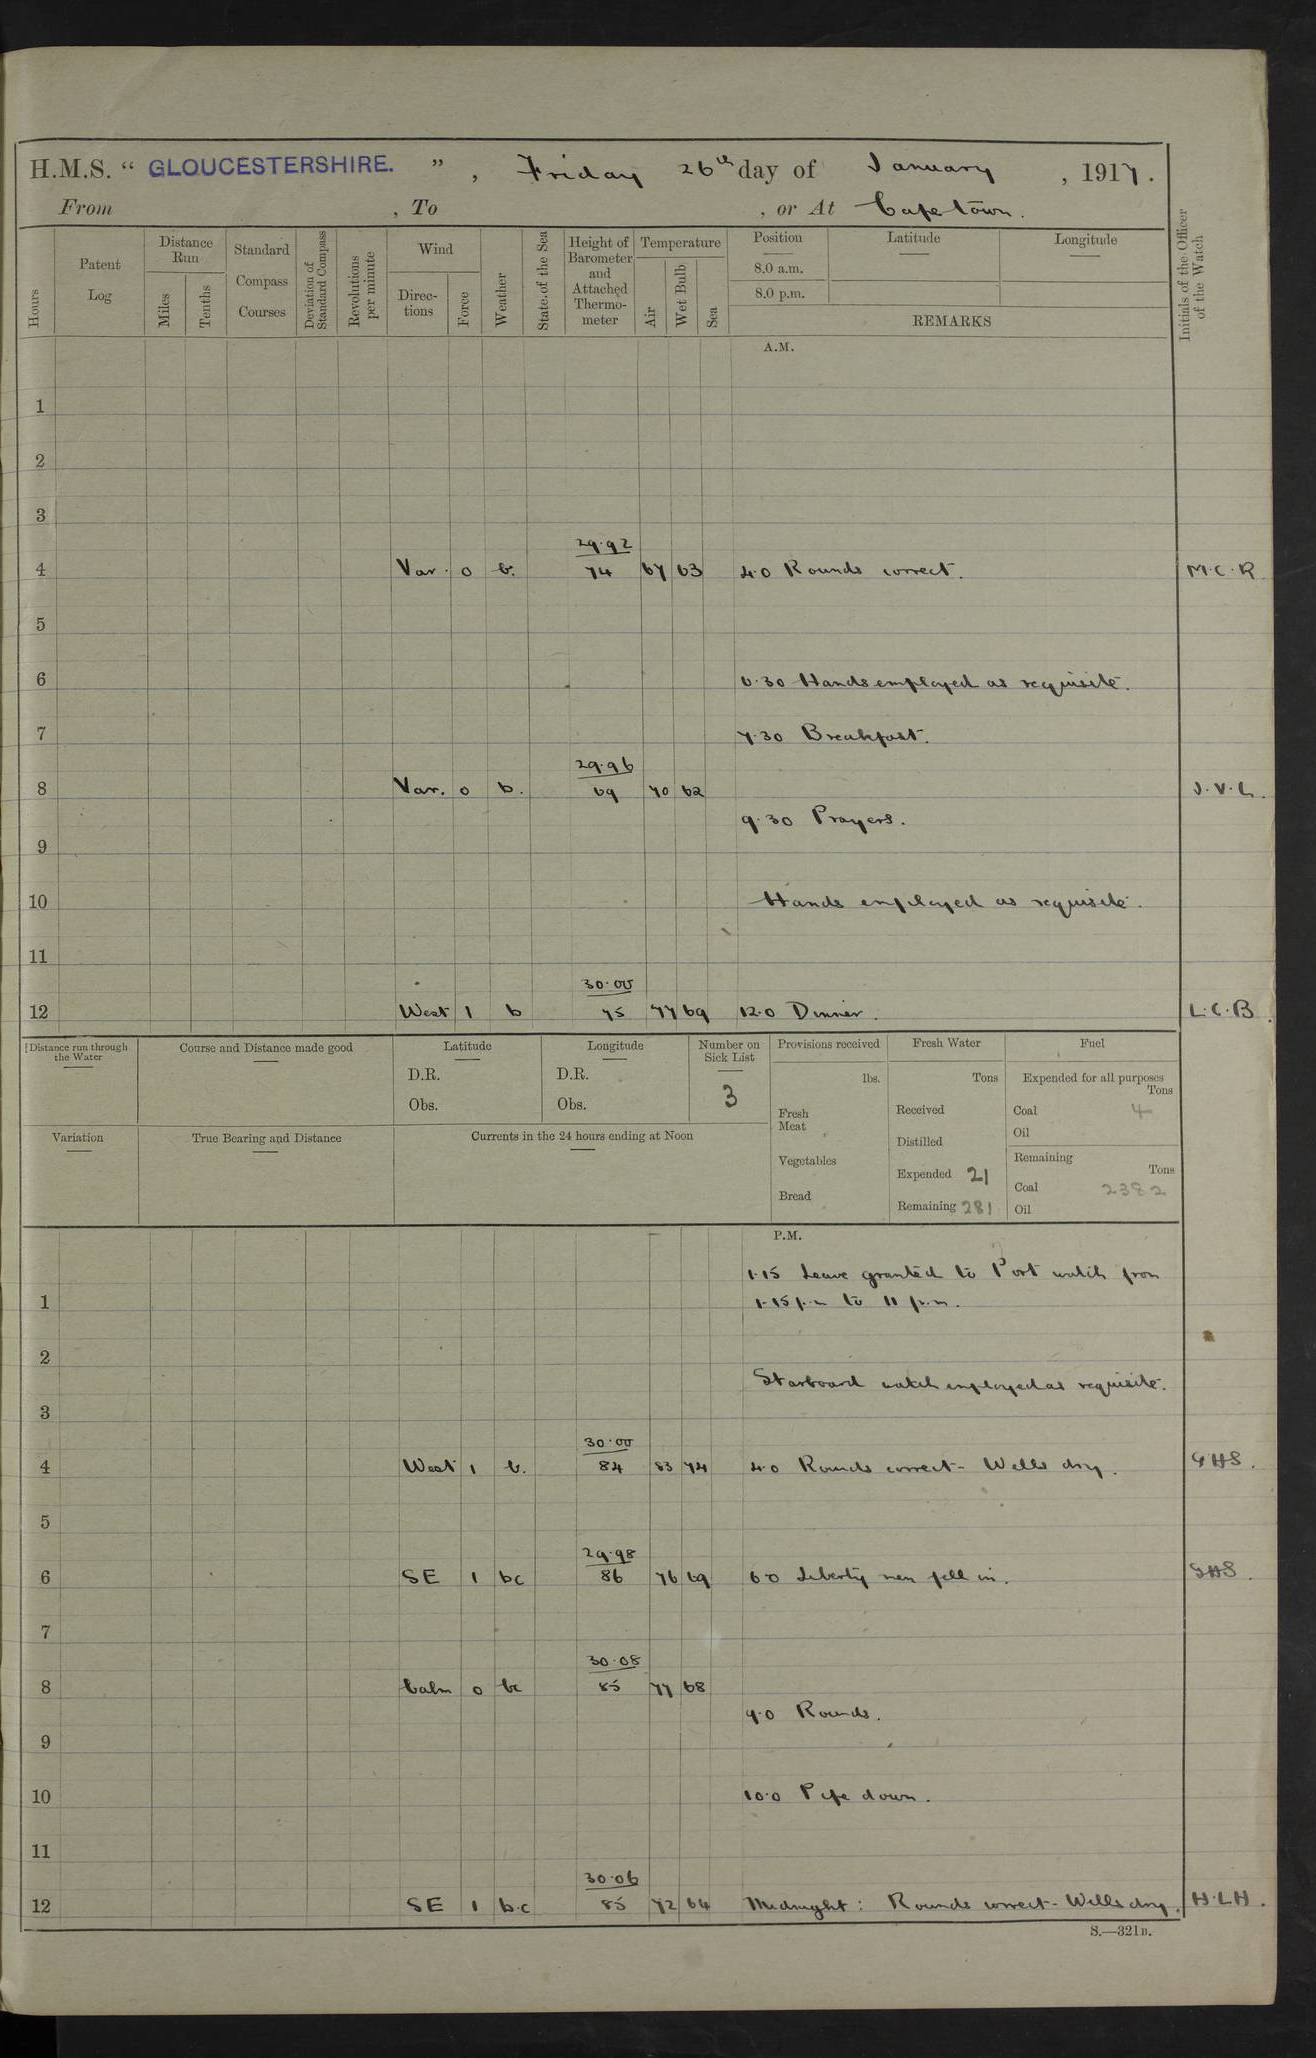 H.M.S. “ GLOUCESTERSHIRE. ”, Friday 26th day of January, 1917.
From , To , or At Capetown.
Hours
Patent Log
Distance Run
Miles
Tenths
Standard Compass Courses
Deviation of Standard Compass
Revolutions per minute
Wind
Directions
Force
Weather
State of the Sea
Height of Barometer and Attached Thermometer
Temperature
Air
Wet Bulb
Sea
Position
8.0 a.m.
8.0 p.m.
Latitude
Longitude
REMARKS
Initials of the Officer of the Watch
A.M.
1
2
3
29.92
4 Var. 0 b. 74 67 63 4.0 Rounds correct. M.C.R
5
6 6.30 Hands employed as requisite.
7 7.30 Breakfast.
29.96
8 Var. 0 b. 69 70 62 J.V.L.
9.30 Prayers.
9
10 Hands employed as requisite.
11
30.00
12 West 1 b 75 77 69 12.0 Dinner. L.C.B.
Distance run through the Water
Course and Distance made good
Latitude
D.R.
Obs.
Longitude
D.R.
Obs.
Number on Sick List
3
Provisions received
lbs.
Fresh Meat
Vegetables
Bread
Fresh Water
Tons
Received
Distilled
Expended 21
Remaining 281
Fuel
Expended for all purposes
Tons
Coal 4
Oil
Remaining
Tons
Coal 2382
Oil
Variation
True Bearing and Distance
Currents in the 24 hours ending at Noon
P.M.
1.15 Leave granted to Port watch from
1 1.15 p.m to 11 p.m.
2
Starboard watch employed as requisite.
3
30.00
4 West 1 b. 84 83 74 4.0 Rounds correct - Wells dry. GHS.
5
29.98
6 SE 1 bc 86 76 69 6.0 Liberty men fell in. GHS.
7
30.08
8 Calm 0 bc 85 77 68
9.0 Rounds.
9
10 10.0 Pipe down.
11
30.06
12 SE 1 b.c 85 72 64 Midnight: Rounds correct - Wells dry. H.L.H.
S.—321B.